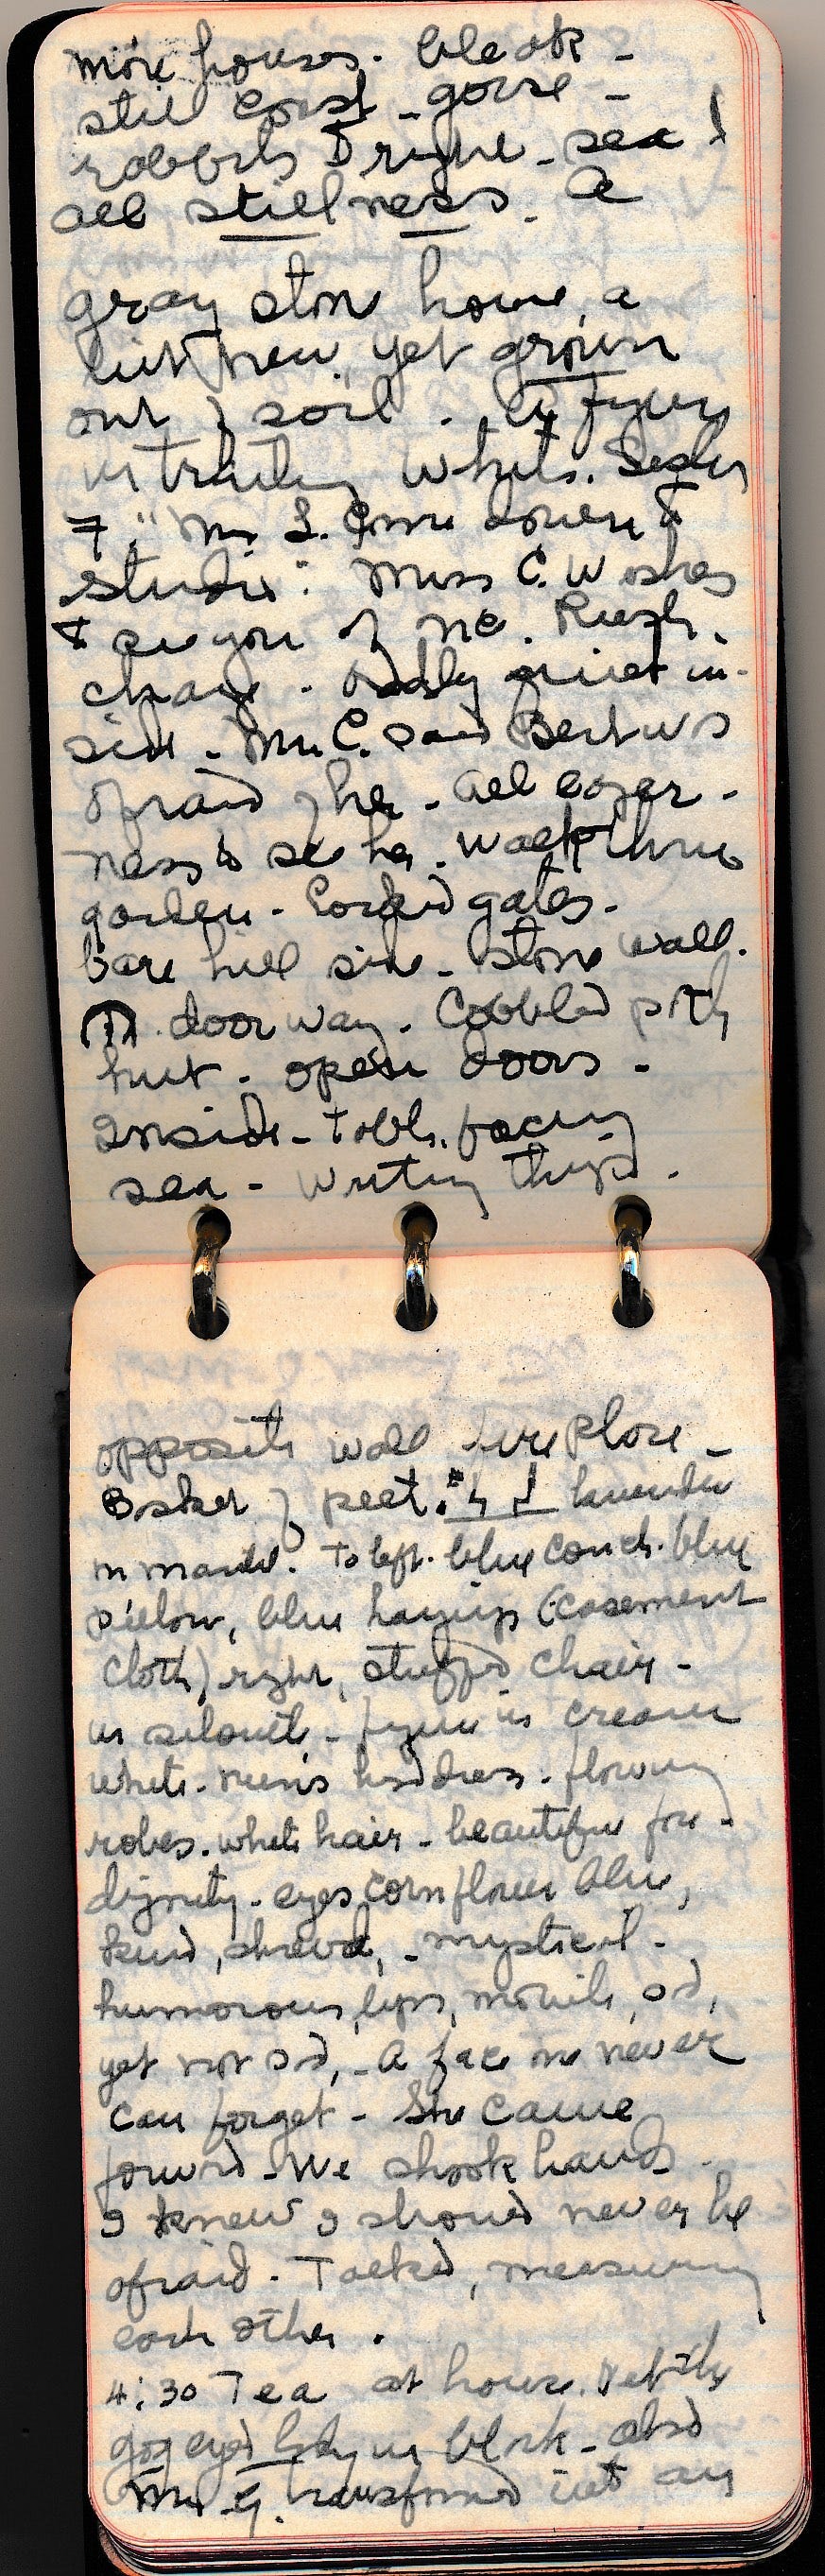 more houses. bleak -
still coast - gorse -
rabbits & right - sea!
all stillness. A
gray stone house, a
bit new. yet grown
out of soil. A figure
in trailing white. Sister
7. "Mr L. Come down to
studio". Miss C. Wishes
to see you at ne. Rush.
change. Oddly quiet in-
side. Mr. C. said Bert was
afraid of her. All eager-
ness to see her. Walk thru
garden - Locked gates.
bare hill side - stone wall.
doorway. Cobbled path
hut. open doors -
Inside - table, facing
sea - writing things.
opposite wall fireplace -
Basket of peat. lavender
on mantel. To left. blue couch. blue
pillow, blue hangings (casement
cloth) right, stuffed chair -
in silouette - figure in cream
white. nun's headdress. flowing
robes. white hair - beautiful face -
dignity - eyes cornflower blue,
kind, shrewd, - mystical -
humorous, lips, mobile, sad,
yet not sad, - A face one never
can forget - She came
forward - We shook hands -
I knew I should never be
afraid. Talked, measuring
each other.
4:30 Tea at house.
gog eyed lady in black - also
Mr G. transformed into an